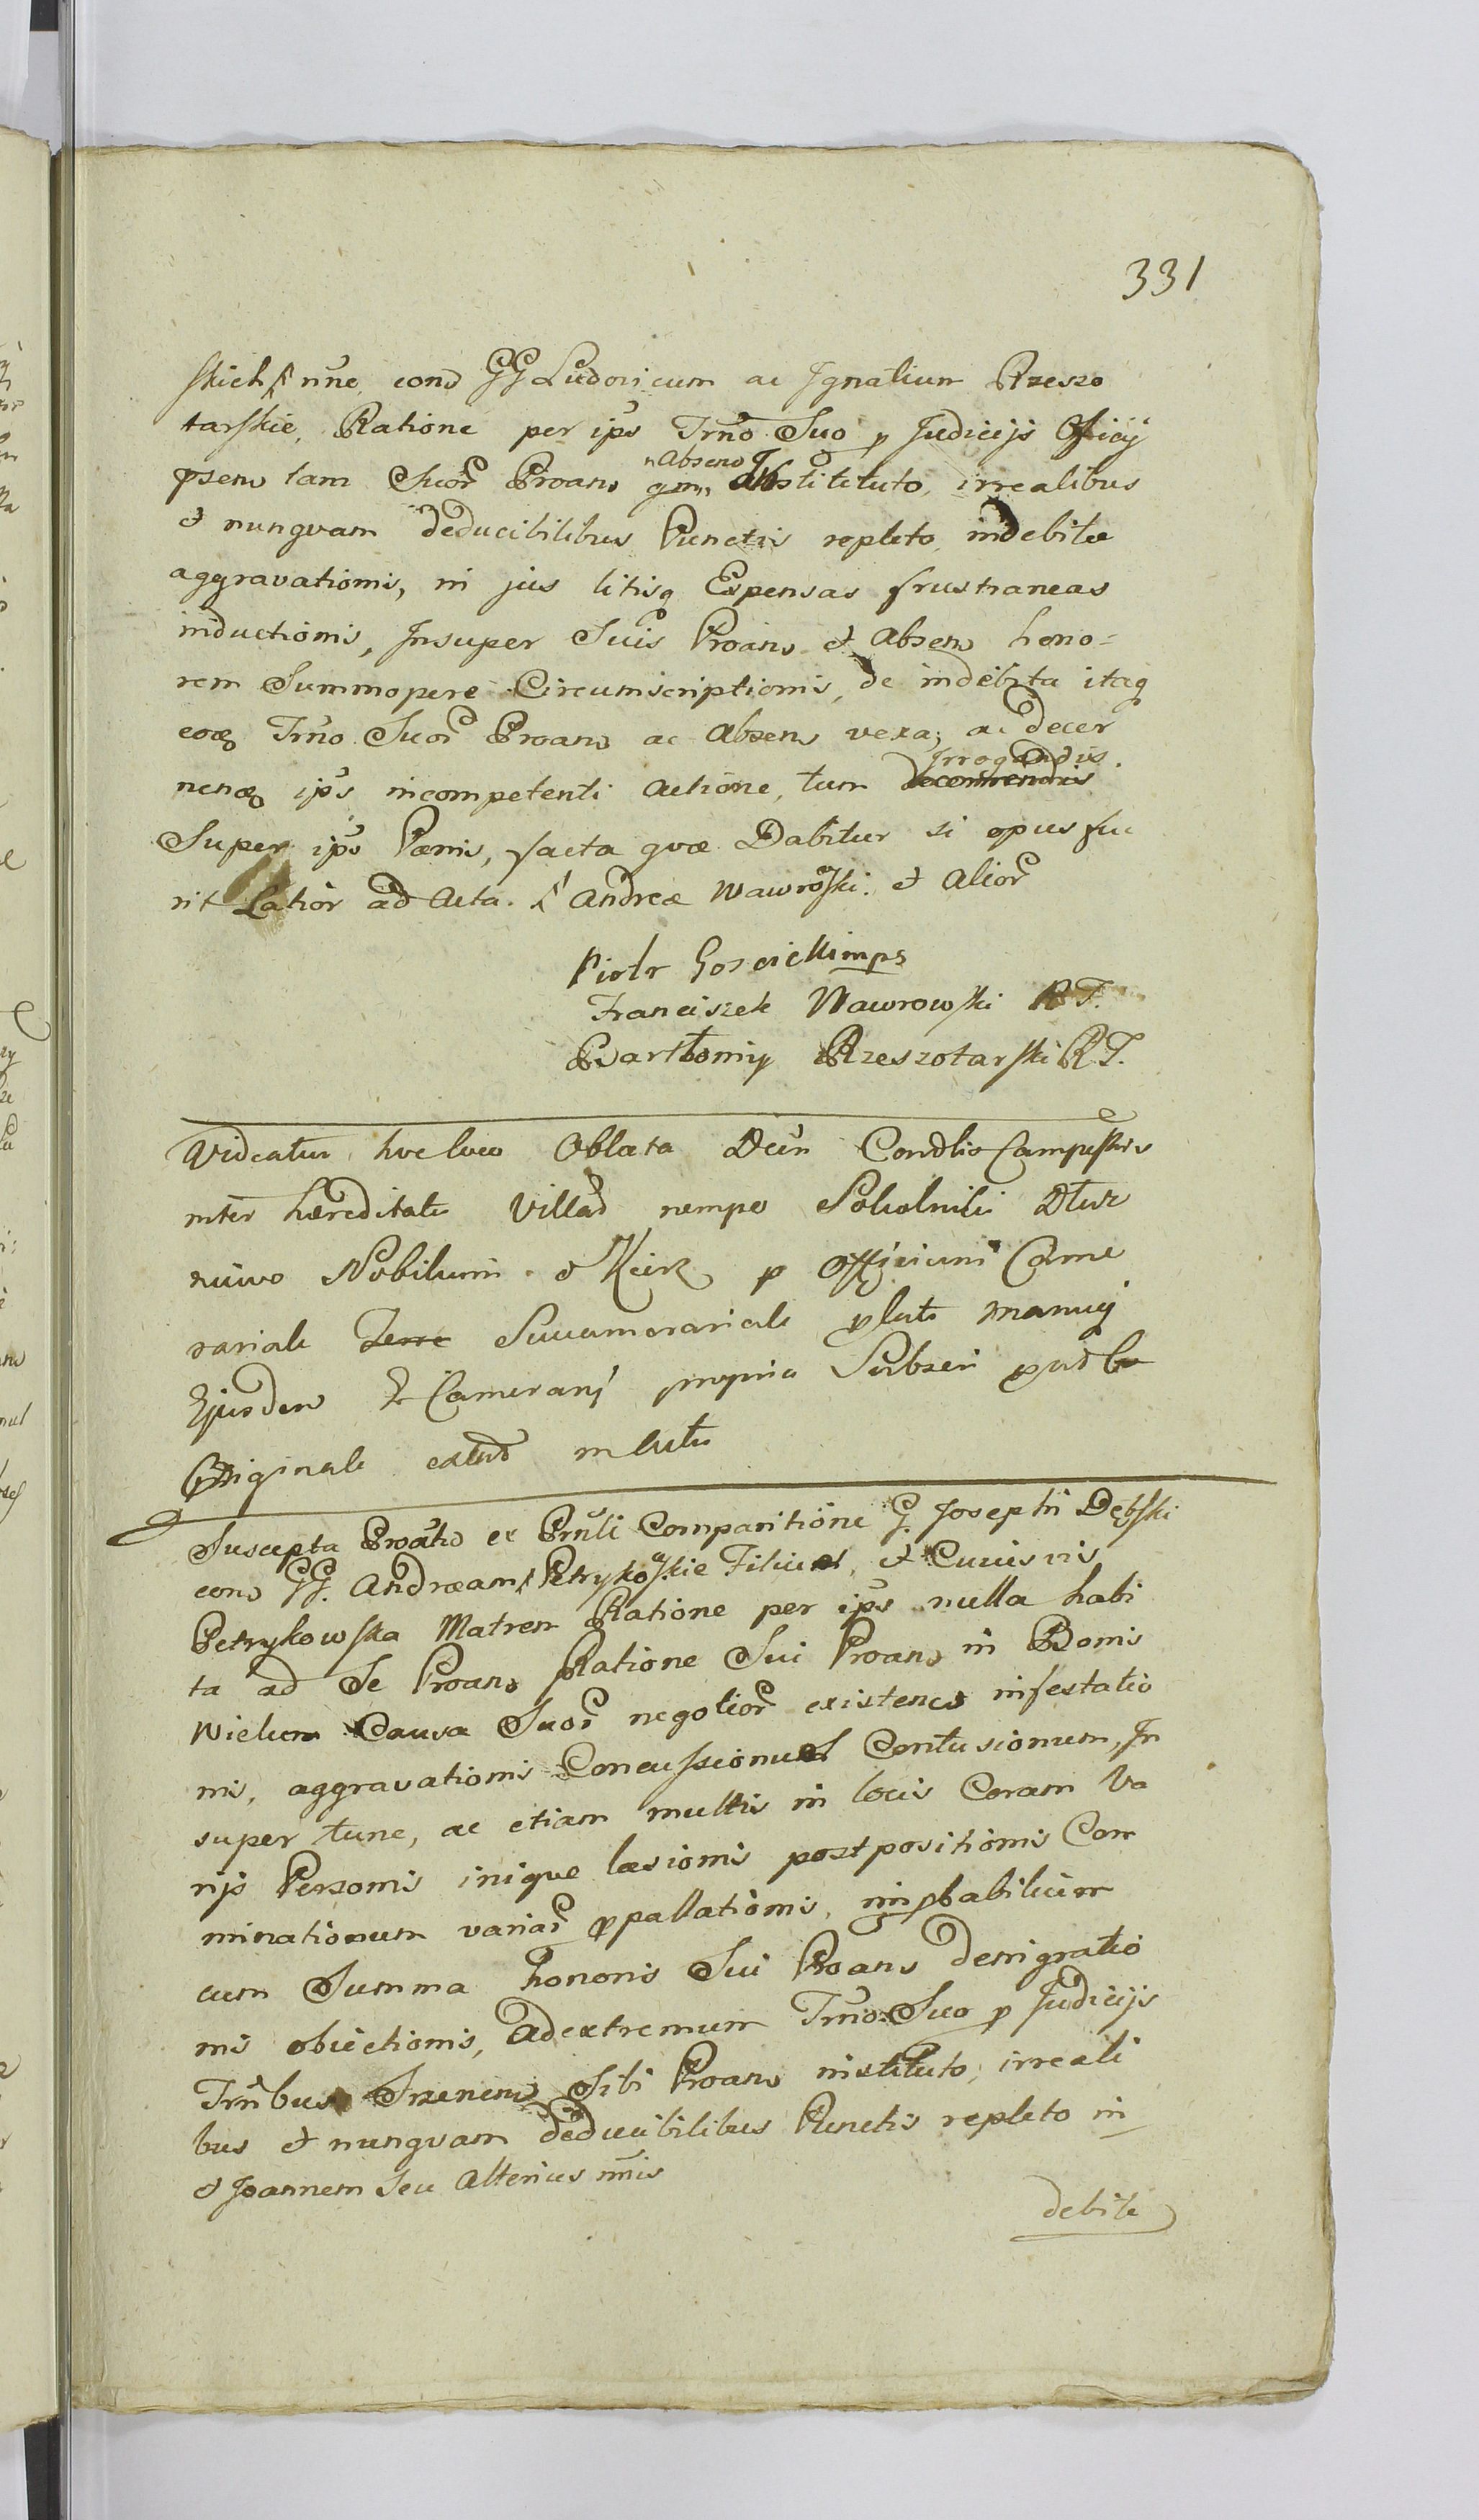 331
skich nne cons GG Ludovicum ac Ignatium Rzeszo
tarskie, Ratione per ips Trno Suo p Judicijs Officij
psens tam Suor Proans qm Absens Instituto, irrealibus
et nunqvam deducibilibus Punctis repleto indebitæ
aggravationis, in jus litisq Expensas frustraneas
inductionis, Insuper Suis Proans et Absens hono=
rem Summopere Circumscriptionis, de indebita itaq
Trno Suor Proans ac Absens vexa; ac decer
ips incompetenti Actione, tum Irrogandis
Super ips Pænis, facta qvæ Dabitur si opus fue
rit Latior ad Acta. Andreæ Wawroski. et Alior
Piotr Goscickimps
Franciszek Wawrowski RT.
Bartłomiy Rzeszotarski RT.
Videatur hoc loco Oblata Condlis Campestris
inter hæreditates Villas nempe
Nobilium et p Officium Came
rariale Terre Succamerariale
Ejusdem Camerarij propria Subscri
Originale
Suscepta Proatio ex Prnli Comparitione G. Josephi Dębski
cons GG. Andræam Petrykoskie Filium, et Cuiusvis
Petrykowska Matrem Ratione per ips nulla habi
ta ad Se Proans Ratione Sui Proans in Bonis
Wielun Causa Suor negotior existens infestatio
nis, aggravationis Concussionum Contusionum, In
super tunc, ac etiam multis in locis Coram Va
rijs Personis iniqve læsionis postpositionis Com
minationum variar ppallationis, improbabilium
cum Summa honoris Sui Proans denigratio
nis obiectionis, Adextremum Trno Suo p Judicijs
Trnbus Sibi Proans instituto, irreali
bus et nunqvam deducibilibus Punctis repleto in
et Joannem seu Alterius nnis
debite